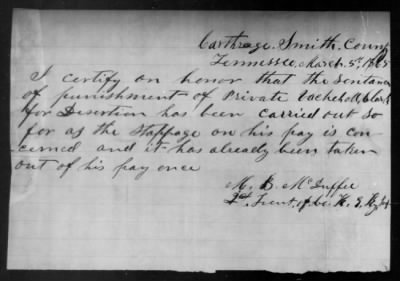 Carthage, Smith, County
Tennessee, March, 5th, 1865
I certify on honor that the Sentance
of punishment of Private Clark
for Desertion has been carried out so
far as the Stappage on his pay is con-
cerned and it has already been taken
out of his pay once
M. B. McDuffee
2d Lieut, of Co. K. Ky